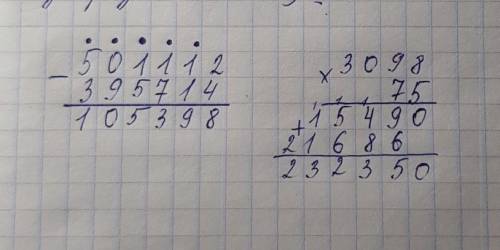 − 501112
395714
105398
× 3098
75
+ 15490
21686
232350